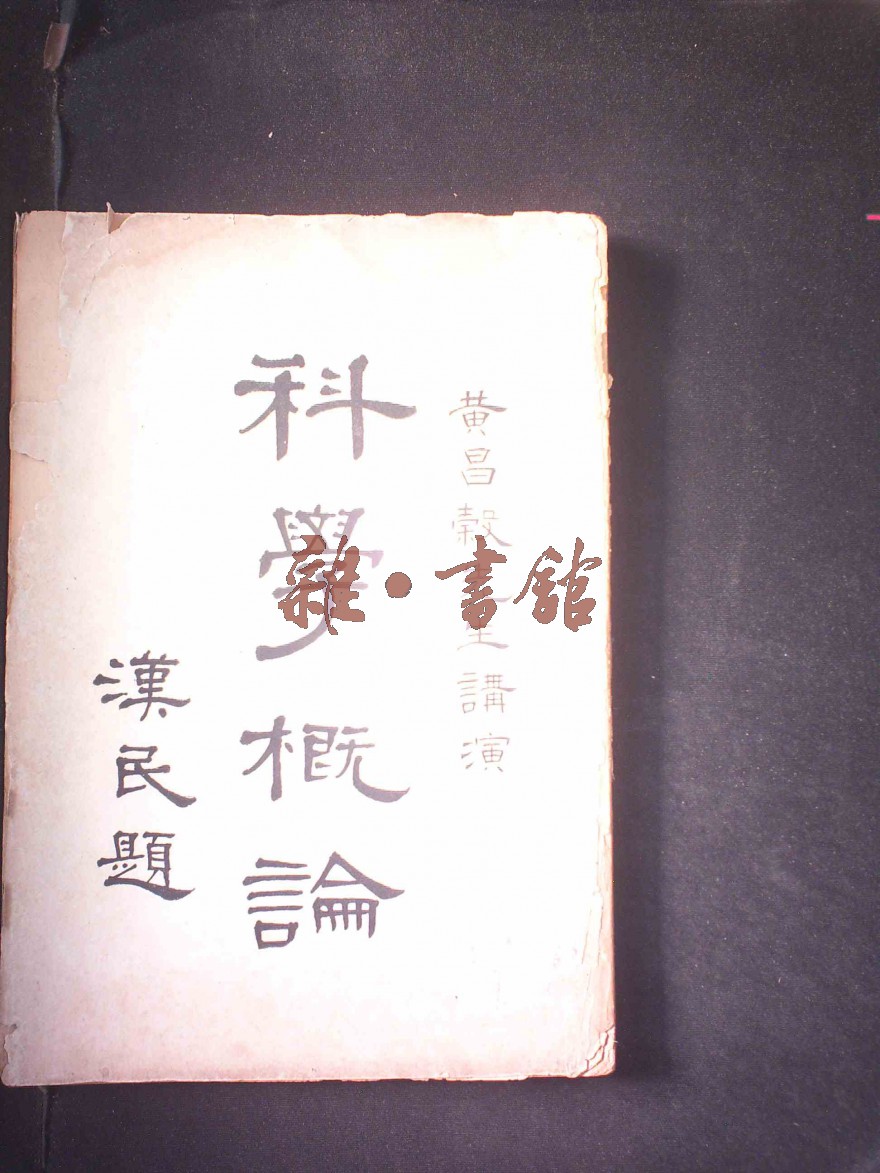 黃昌穀先生講演
科學概論
漢民題
雜·書館